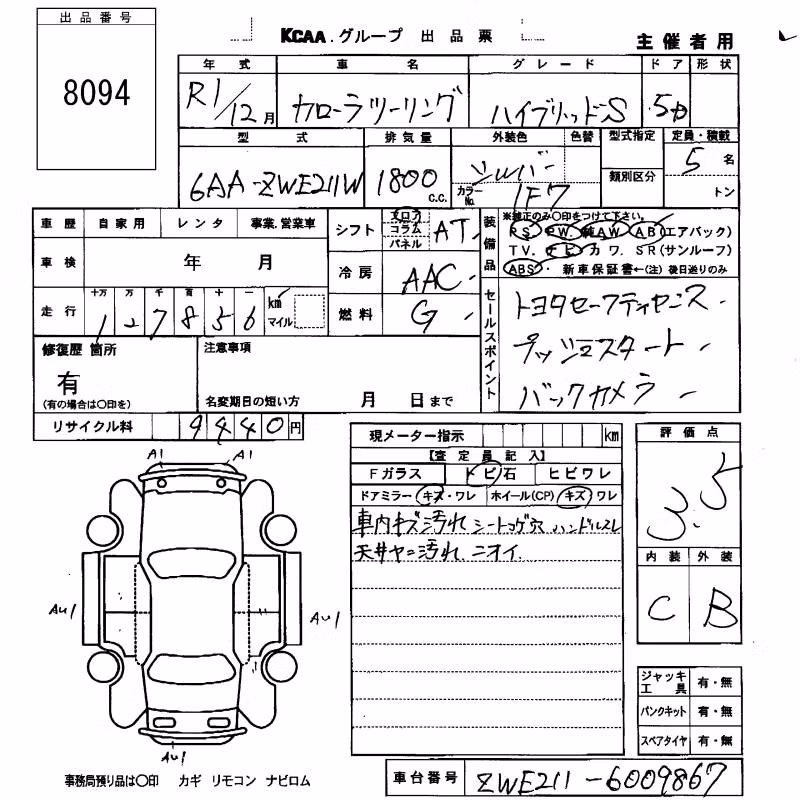 出品番号
8094
KCAA.グループ 出品票
主催者用
年式 車名 グレード ドア 形状
R1/12月 カローラツーリング ハイブリッドS 5D
型式 排気量 外装色 色替 型式指定 定員・積載
6AA-ZWE211W 1800 C.C. シルバー カラーNo. 1F7 類別区分 5名 トン
車歴 自家用 レンタ 事業.営業車
シフト フロア コラム パネル AT
装備品
※純正のみ○印をつけて下さい。
PS. PW. 純AW. AB(エアバック)
TV. ナビ カワ. SR(サンルーフ)
ABS・ 新車保証書←(注)後日送りのみ
車検 年 月
冷房 AAC
走行 十万 万 千 百 十 一 km マイル
127856
燃料 G
セールスポイント
トヨタセーフティセンス
プッシュスタート
バックカメラ
修復歴 箇所
有
(有の場合は○印を)
注意事項
名変期日の短い方 月 日まで
リサイクル料 9440円
現メーター指示 km
【査定員記入】
Fガラス トビ石 ヒビワレ
ドアミラー キズ・ワレ ホイール(CP) キズ ワレ
車内キズ汚れ シートコゲ穴 ハンドルスレ
天井ヤニ汚れ ニオイ
評価点
3.5
内装 外装
C B
A1 A1
AU1 AU1
AU1
ジャッキ工具 有・無
パンクキット 有・無
スペアタイヤ 有・無
事務局預り品は○印 カギ リモコン ナビロム
車台番号 ZWE211-6009867